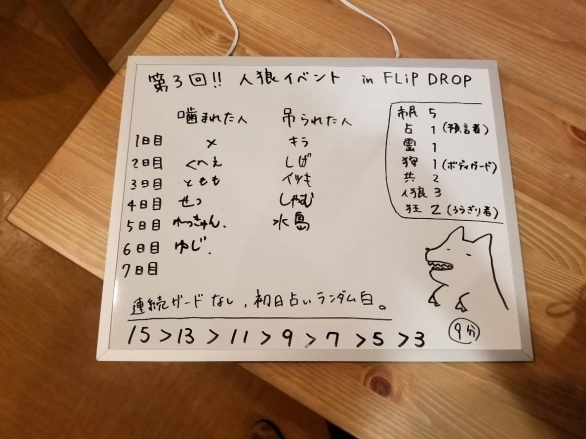 第3回!! 人狼イベント in FLiP DROP
噛まれた人 吊られた人
1日目 × キラ
2日目 くへえ しげ
3日目 ともも イツキ
4日目 せっ しゃむ
5日目 水島
6日目 ゆじ.
7日目
市民 5
占 1 (預言者)
霊 1
狩 1 (ボディガード)
共 2
人狼 3
狂 2 (うらぎり者)
連続ガードなし,初日占いランダム白。
15 > 13 > 11 > 9 > 7 > 5 > 3
9分